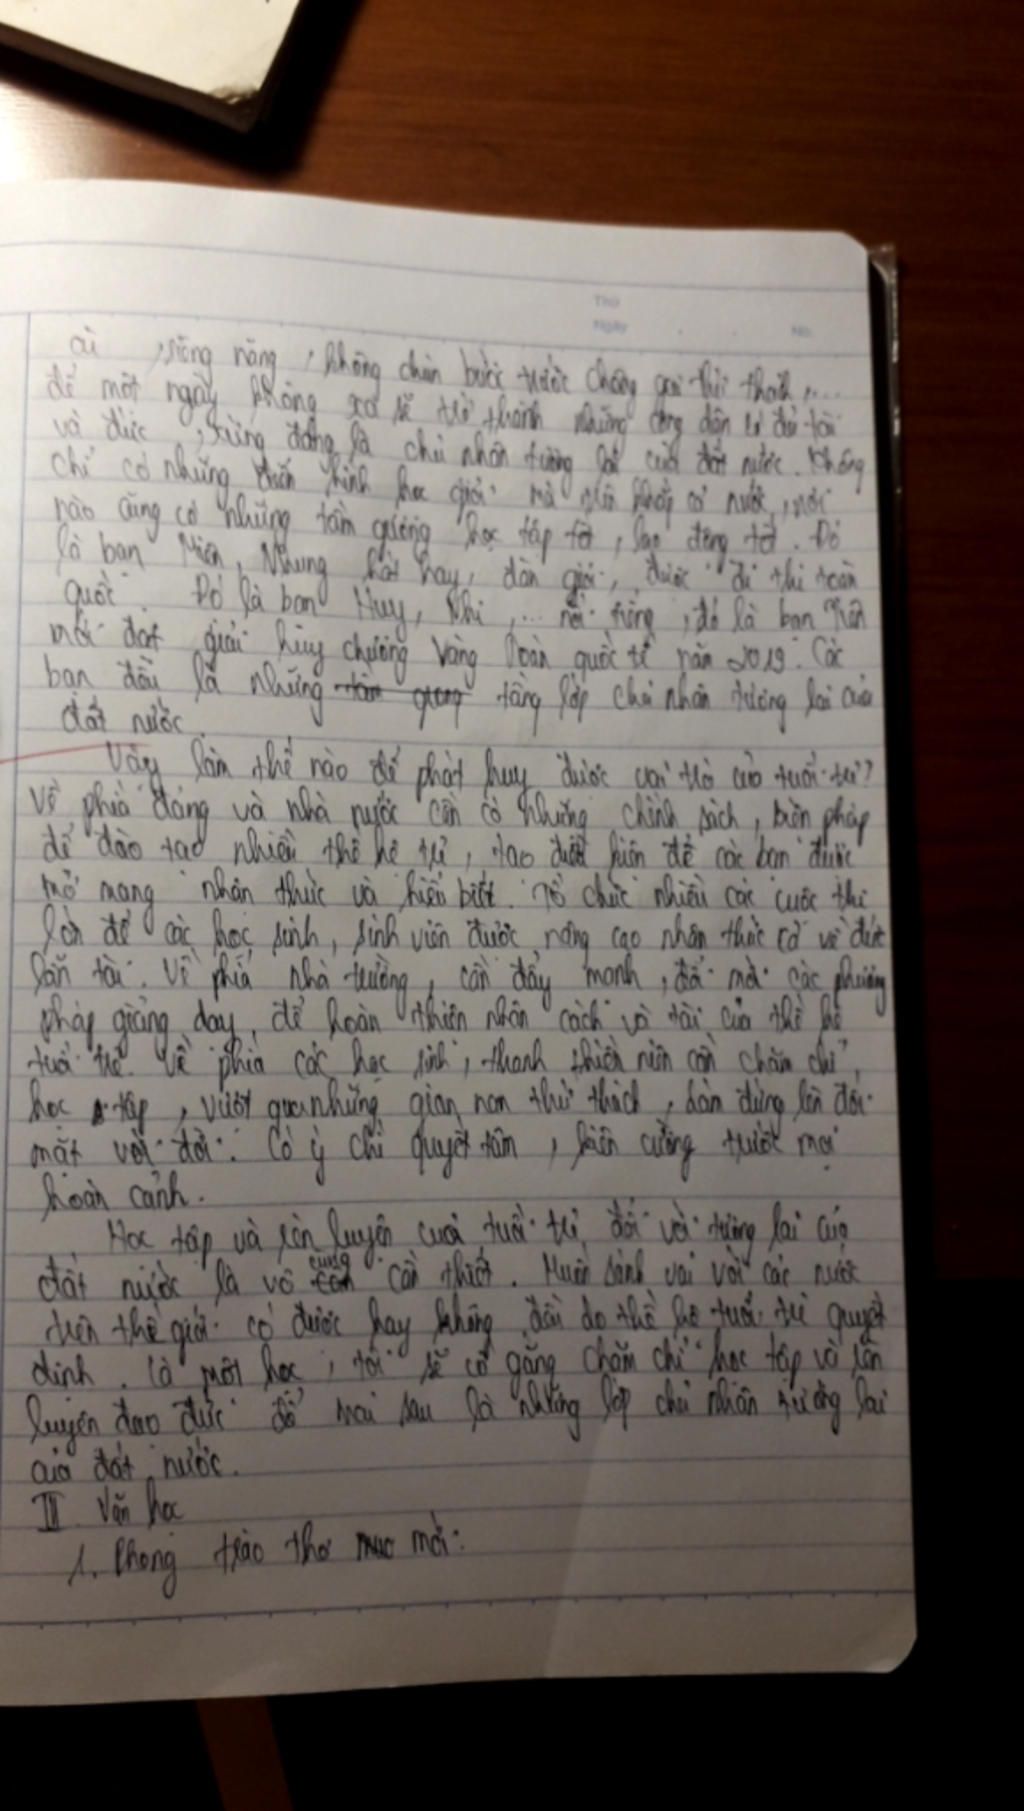 Thứ
Ngày No.
cù, siêng năng, không chùn bước trước chông gai thử thách,...
để một ngày không xa sẽ trở thành những công dân có đủ tài
và đức, xứng đáng là chủ nhân tương lai của đất nước. Không
chỉ có những học giỏi mà trên khắp cả nước, nơi
nào cũng có những tấm gương học tập tốt, lao động tốt. Đó
là bạn Miên, Nhung hát hay, đàn giỏi, được đi thi toàn
quốc. Đó là bạn Huy, Nhi,... nổi tiếng, đó là bạn
mới đạt giải huy chương vàng Toán quốc tế năm 2019. Các
bạn đều là những tầng lớp chủ nhân tương lai của
đất nước.
Vậy làm thế nào để phát huy được vai trò của tuổi trẻ?
Về phía đảng và nhà nước cần có những chính sách, biện pháp
để đào tạo nhiều thế hệ trẻ, tạo điều kiện để các bạn được
mở mang nhận thức và hiểu biết. Tổ chức nhiều các cuộc thi
lớn để các học sinh, sinh viên được nâng cao nhận thức cả về đức
lẫn tài. Về phía nhà trường, cần đẩy mạnh, đổi mới các phương
pháp giảng dạy, để hoàn thiện nhân cách và tài của thế hệ
tuổi trẻ. Về phía các học sinh, thanh thiếu niên cần chăm chỉ,
học tập, vượt qua những gian nan thử thách, dám đứng lên đối
mặt với đời. Có ý chí quyết tâm, kiên cường trước mọi
hoàn cảnh.
Học tập và rèn luyện của tuổi trẻ đối với tương lai của
đất nước là vô cùng cần thiết. Muốn sánh vai với các nước
trên thế giới có được hay không đều do thế hệ tuổi trẻ quyết
định. Là một học, tôi sẽ cố gắng chăm chỉ học tập và rèn
luyện đạo đức để mai sau là những lớp chủ nhân tương lai
của đất nước.
III. Văn học
1. Phong trào thơ mới: